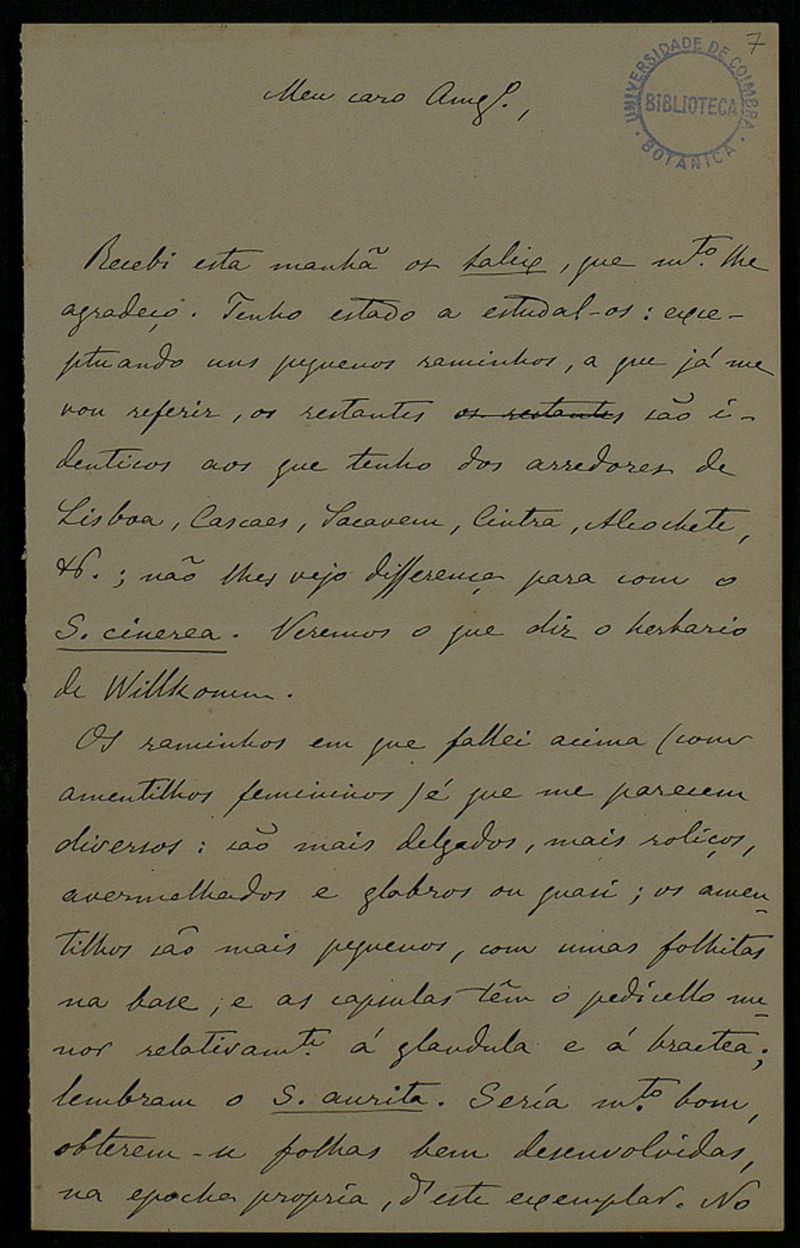 7
UNIVERSIDADE DE COIMBRA
BIBLIOTECA
BOTANICA
Meu caro Amgº.,
Recebi esta manhã os Salix, que mto. lhe
agradeço. Tenho estado a estudal-os: exce-
ptuando uns pequenos raminhos, a que já me
vou referir, os restantes os restantes são i-
denticos aos que tenho dos arredores de
Lisboa, Cascaes, Sacavem, Cintra, Alcochete,
&c.; não lhes vejo differença para com o
S. cinerea. Veremos o que diz o herbario
de Willkomm.
Os raminhos em que fallei acima (com
amentilhos femininos) é que me parecem
diversos: são mais delgados, mais roliços,
avermelhados e glabros ou quasi; os amen-
tilhos são mais pequenos, com umas folhitas
na base, e as capsulas têm o pedicello me-
nor relativamte. á glandula e á bractea;
lembram o S. aurita. Sería mto. bom,
obterem-se folhas bem desenvolvidas,
na epocha propria, d'este exemplar. No